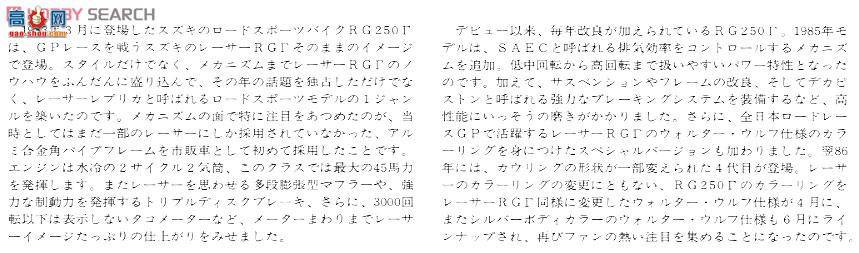 HOBBY SEARCH
高手网
gao-shou.com
年3月に登場したスズキのロードスポーツバイクRG250Γ
は、GPレースを戦うスズキのレーサーRGΓそのままのイメージ
で登場。スタイルだけでなく、メカニズムまでレーサーRGΓのノ
ウハウをふんだんに盛り込んで、その年の話題を独占しただけでな
く、レーサーレプリカと呼ばれるロードスポーツモデルの1ジャン
ルを築いたのです。メカニズムの面で特に注目をあつめたのが、当
時としてはまだ一部のレーサーにしか採用されていなかった、アル
ミ合金角パイプフレームを市販車として初めて採用したことです。
エンジンは水冷の2サイクル2気筒、このクラスでは最大の45馬力
を発揮します。またレーサーを思わせる多段膨張型マフラーや、強
力な制動力を発揮するトリプルディスクブレーキ、さらに、3000回
転以下は表示しないタコメーターなど、メーターまわりまでレーサ
ーイメージたっぷりの仕上がりをみせました。
デビュー以来、毎年改良が加えられているRG250Γ。1985年モ
デルは、SAECと呼ばれる排気効率をコントロールするメカニズ
ムを追加。低中回転から高回転まで扱いやすいパワー特性となった
のです。加えて、サスペンションやフレームの改良、そしてデカピ
ストンと呼ばれる強力なブレーキングシステムを装備するなど、高
性能にいっそうの磨きがかかりました。さらに、全日本ロードレー
スGPで活躍するレーサーRGΓのウォルター・ウルフ仕様のカラ
ーリングを身につけたスペシャルバージョンも加わりました。翌86
年には、カウリングの形状が一部変えられた4代目が登場。レーサ
ーのカラーリングの変更にともない、RG250Γのカラーリングを
レーサーRGΓ同様に変更したウォルター・ウルフ仕様が4月に、
またシルバーボディカラーのウォルター・ウルフ仕様も6月にライ
ンナップされ、再びファンの熱い注目を集めることになったのです。